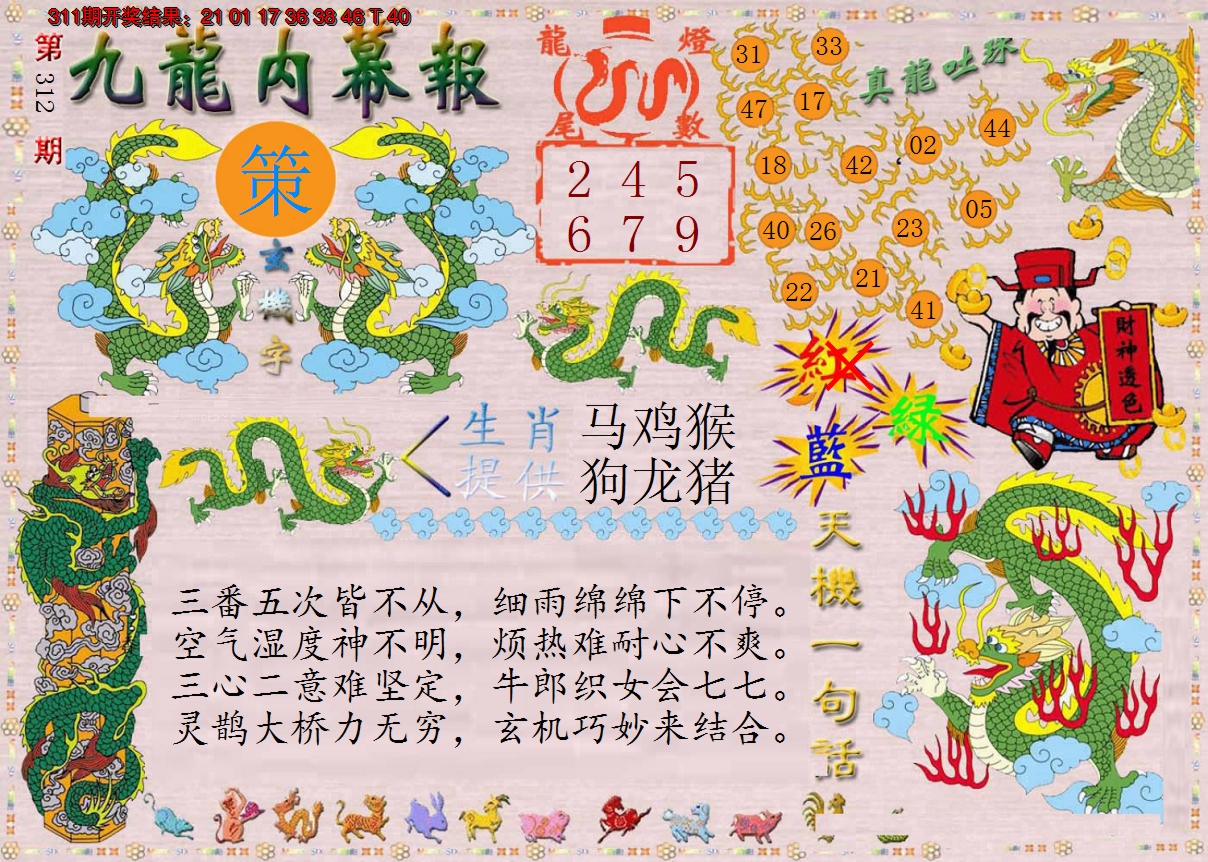 311期开奖结果：21 01 17 36 38 46 T 40
第312期
九龍内幕報
策
玄機字
龍燈
尾數
2 4 5
6 7 9
真龍吐珠
31 33
47 17
18 42 02 44
40 26 23 05
22 21 41
紅
綠
藍
財神透色
生肖提供
马鸡猴
狗龙猪
天機一句話
三番五次皆不从，细雨绵绵下不停。
空气湿度神不明，烦热难耐心不爽。
三心二意难坚定，牛郎织女会七七。
灵鹊大桥力无穷，玄机巧妙来结合。